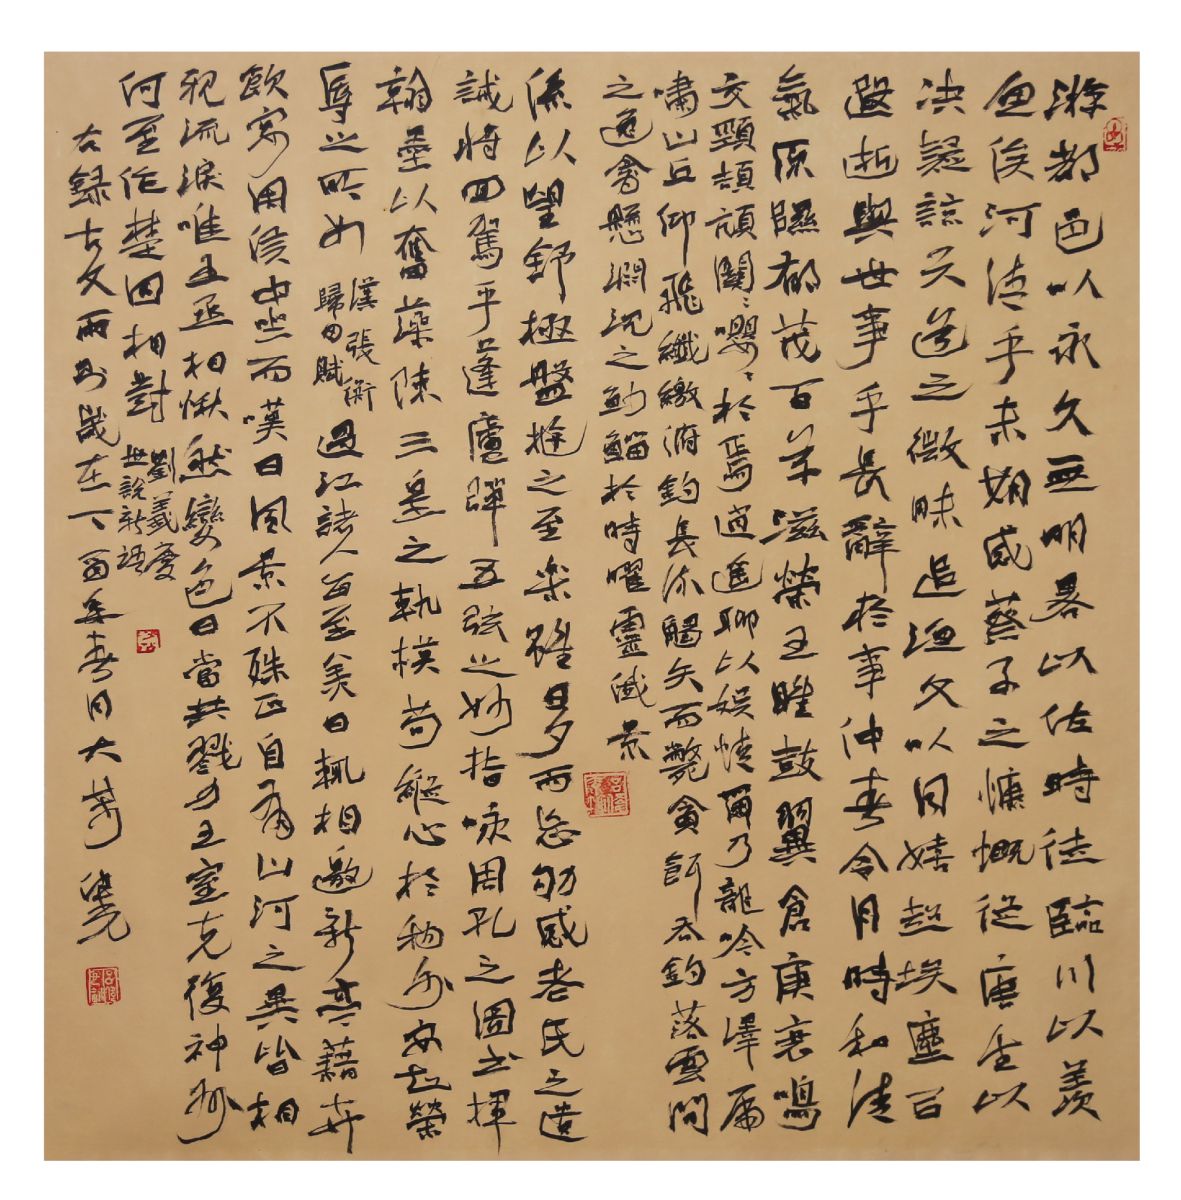 游都邑以永久無明畧以佐時徒臨川以羨
魚俟河清乎未期感蔡子之慷慨從唐生以
決疑諒天道之微昧追漁父以同嬉超埃塵以
遐逝與世事乎長辭於事仲春令月時和清
氣原隰郁茂百草滋榮王雎鼓翼倉庚哀鳴
交頸頡頏關ゝ嚶ゝ於焉逍遙聊以娛情爾乃龍吟方澤虎
嘯山丘仰飛纖繳俯釣長流觸矢而斃貪餌吞鈎落雲間
之逸禽懸淵沉之魦鰡於時曜靈俄景
係以望舒極盤遊之至樂雖日夕而忘劬感老氏之遺
誡將回駕乎蓬廬彈五弦之妙指詠周孔之圖書揮
翰墨以奮藻陳三皇之軌模苟縱心於物外安知榮
辱之所如 漢張衡歸田賦 過江諸人每至美日輒相邀新亭藉卉
飲宴周侯中坐而嘆曰風景不殊正自有山河之異皆相
視流淚唯王丞相愀然變色曰當共戮力王室克復神州
何至作楚囚相對 劉義慶世說新語
右錄古文兩則歲在丁酉年春月大曉